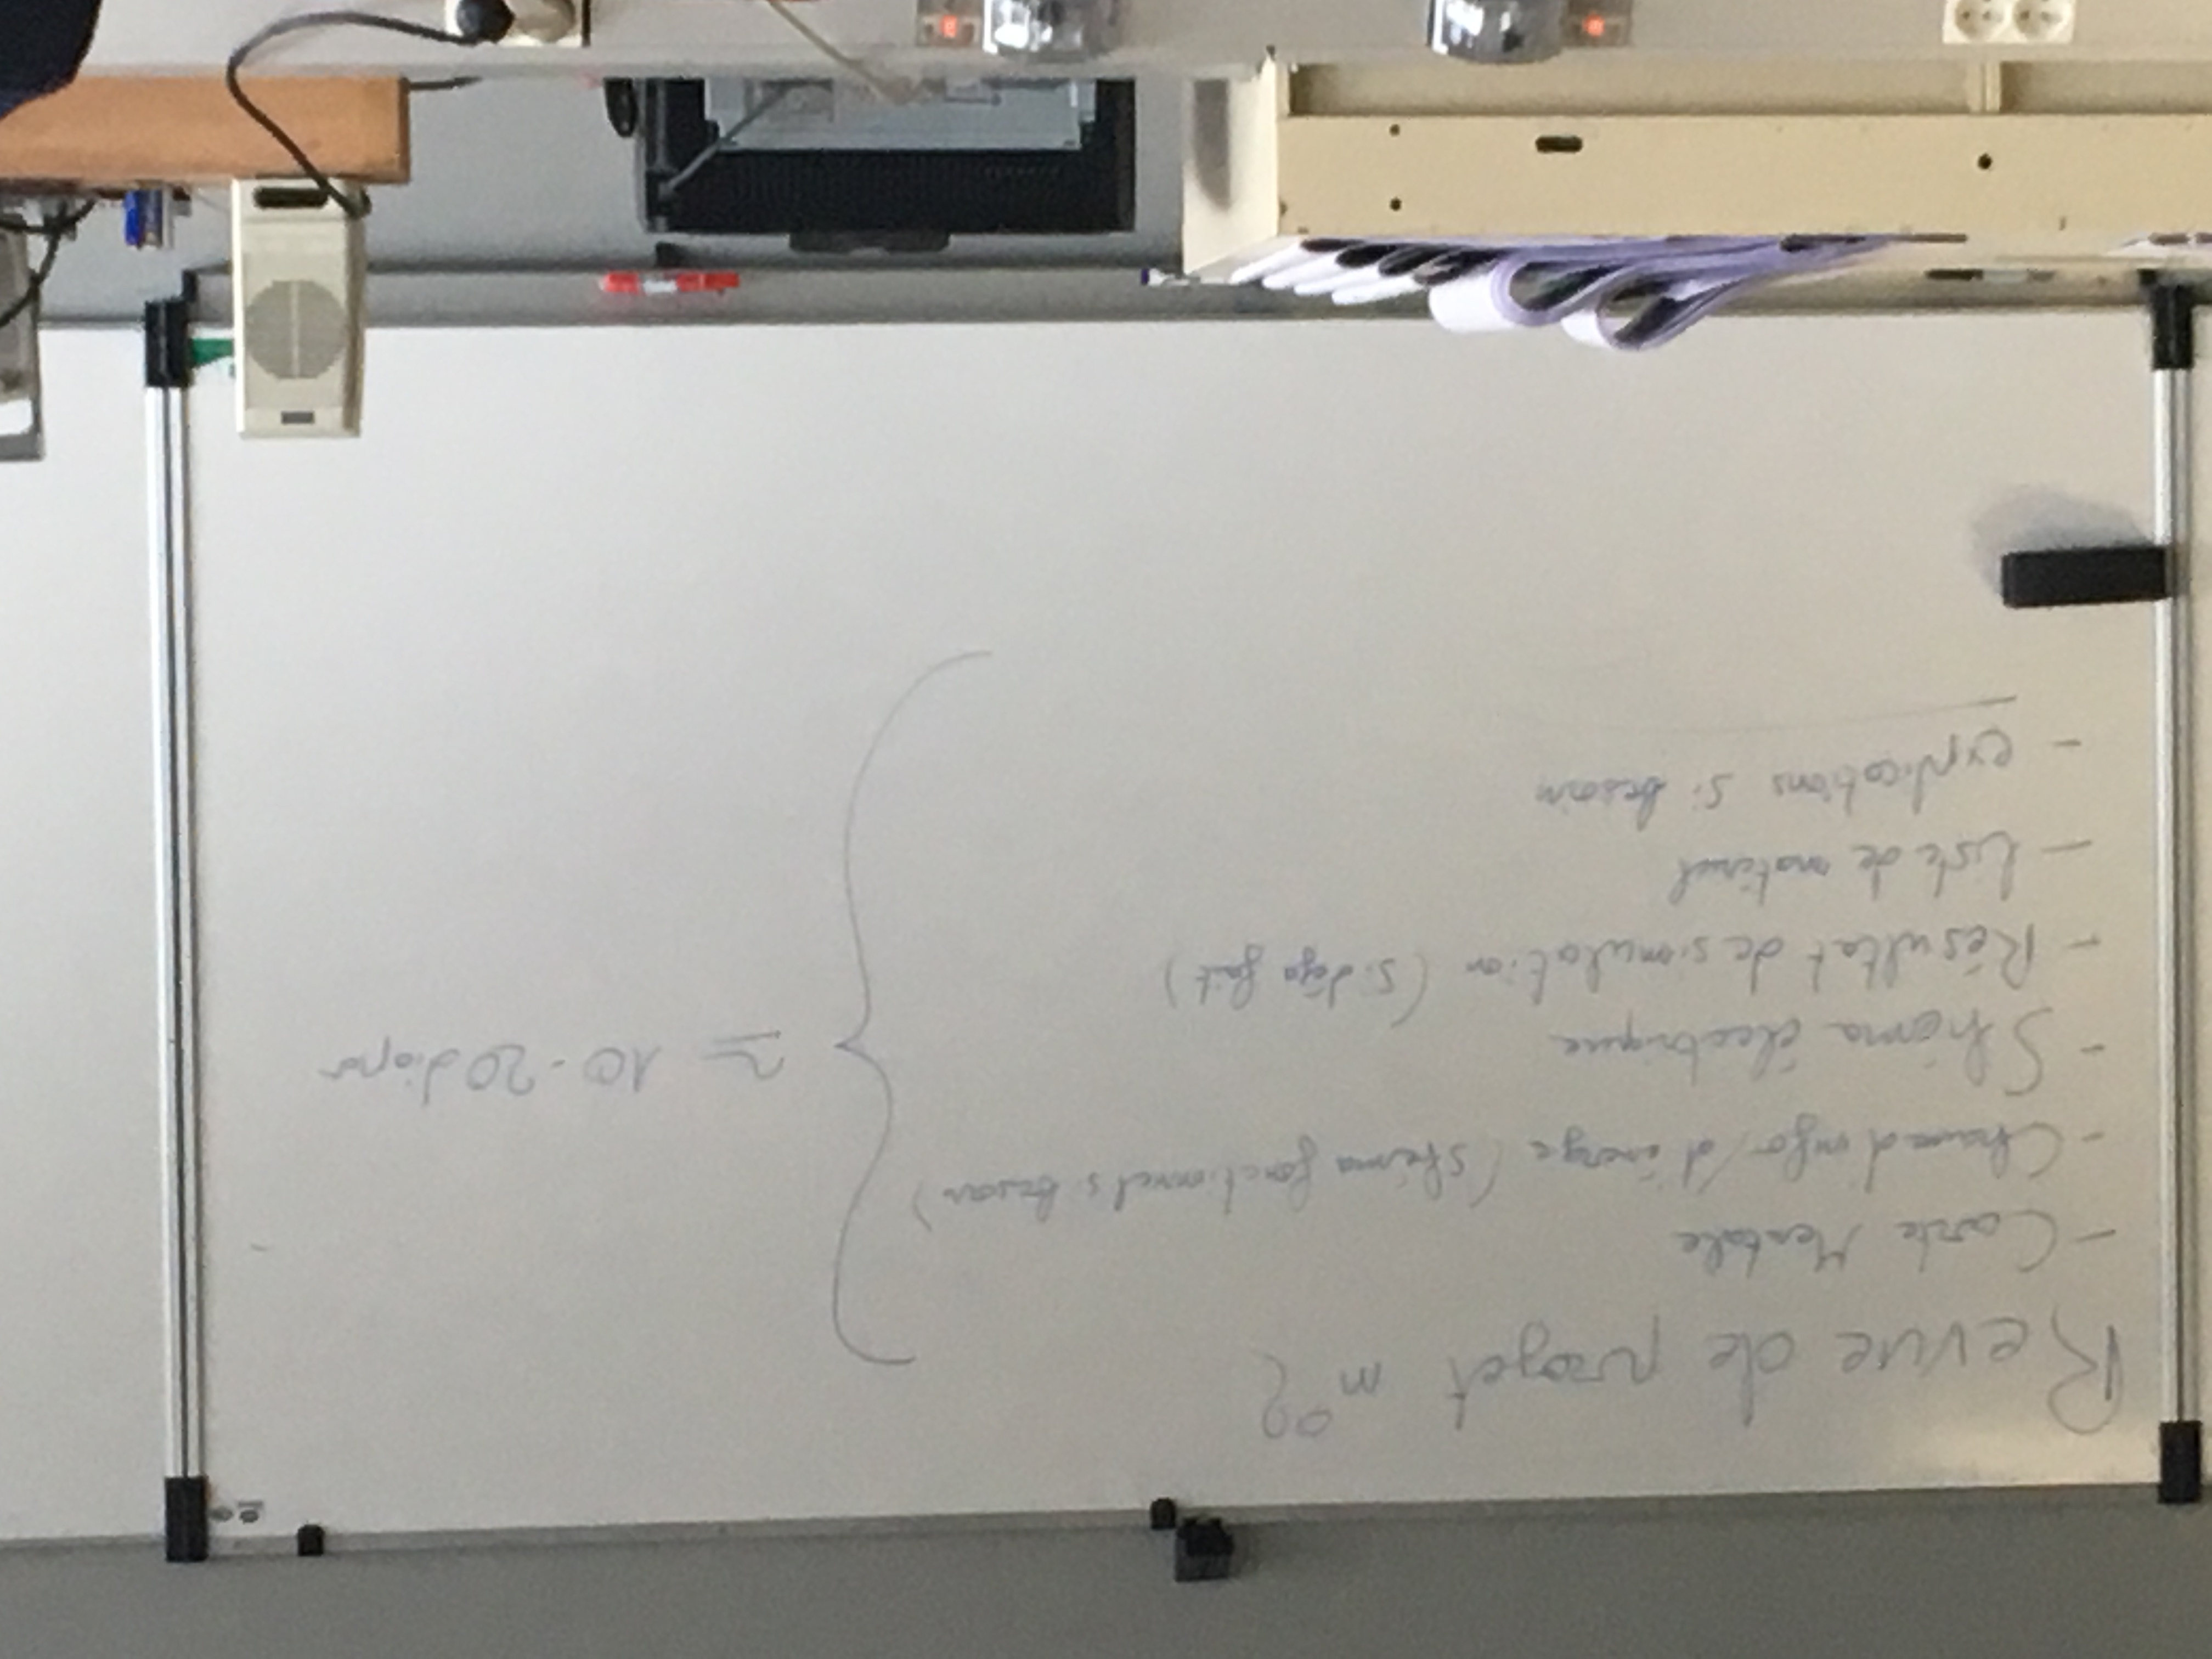 Revue de projet n°2
- Carte Mentale
- Chaine d'info/d'énergie (shéma fonctionnel si besoin)
- Shéma électrique
- Résultat de simulation (si déja fait)
- liste de matériel
- explications si besoin
≃ 10-20 diapos